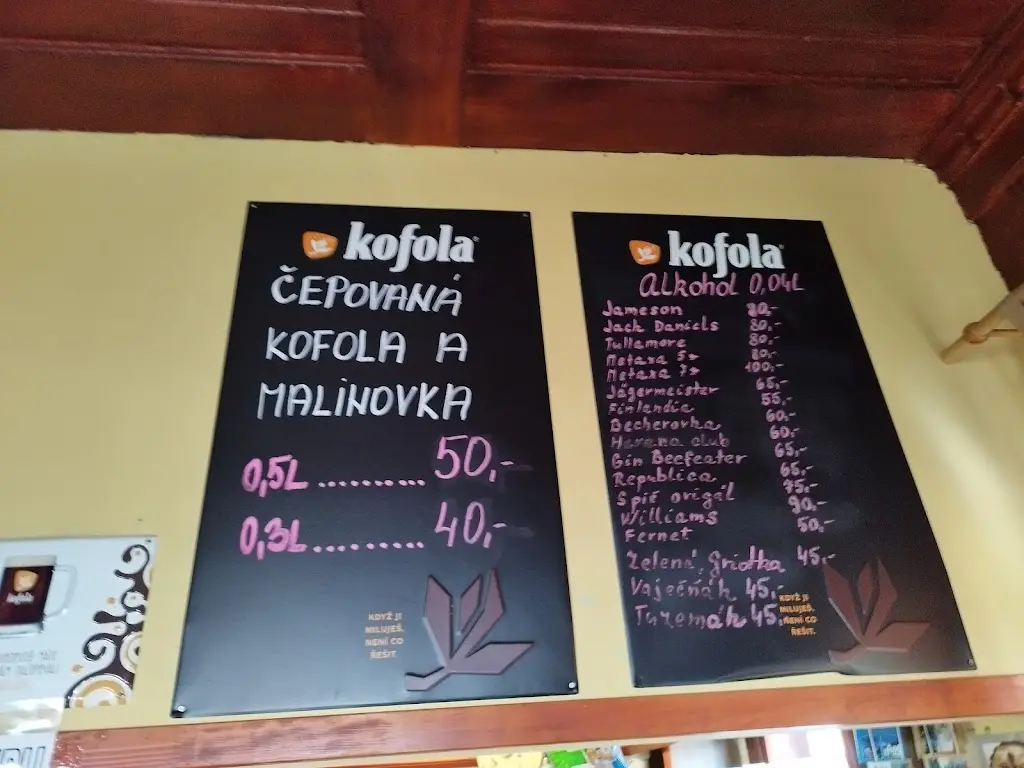 kofola
ČEPOVANÁ
KOFOLA A
MALINOVKA
0,5L .......... 50,-
0,3L .......... 40,-
KDYŽ JI
MILUJEŠ,
NENÍ CO
ŘEŠIT.
kofola
Alkohol 0,04L
Jameson 80,-
Jack Daniels 80,-
Tullamore 80,-
Metaxa 5* 80,-
Metaxa 7* 100,-
Jägermeister 65,-
Finlandia 55,-
Becherovka 60,-
Havana club 60,-
Gin Beefeater 65,-
Republica 65,-
Spiš origál 75,-
Williams 90,-
Fernet 50,-
Zelená, Griotka 45,-
Vaječňák 45,-
Tuzemák 45,-
KDYŽ JI
MILUJEŠ,
NENÍ CO
ŘEŠIT.
kofola